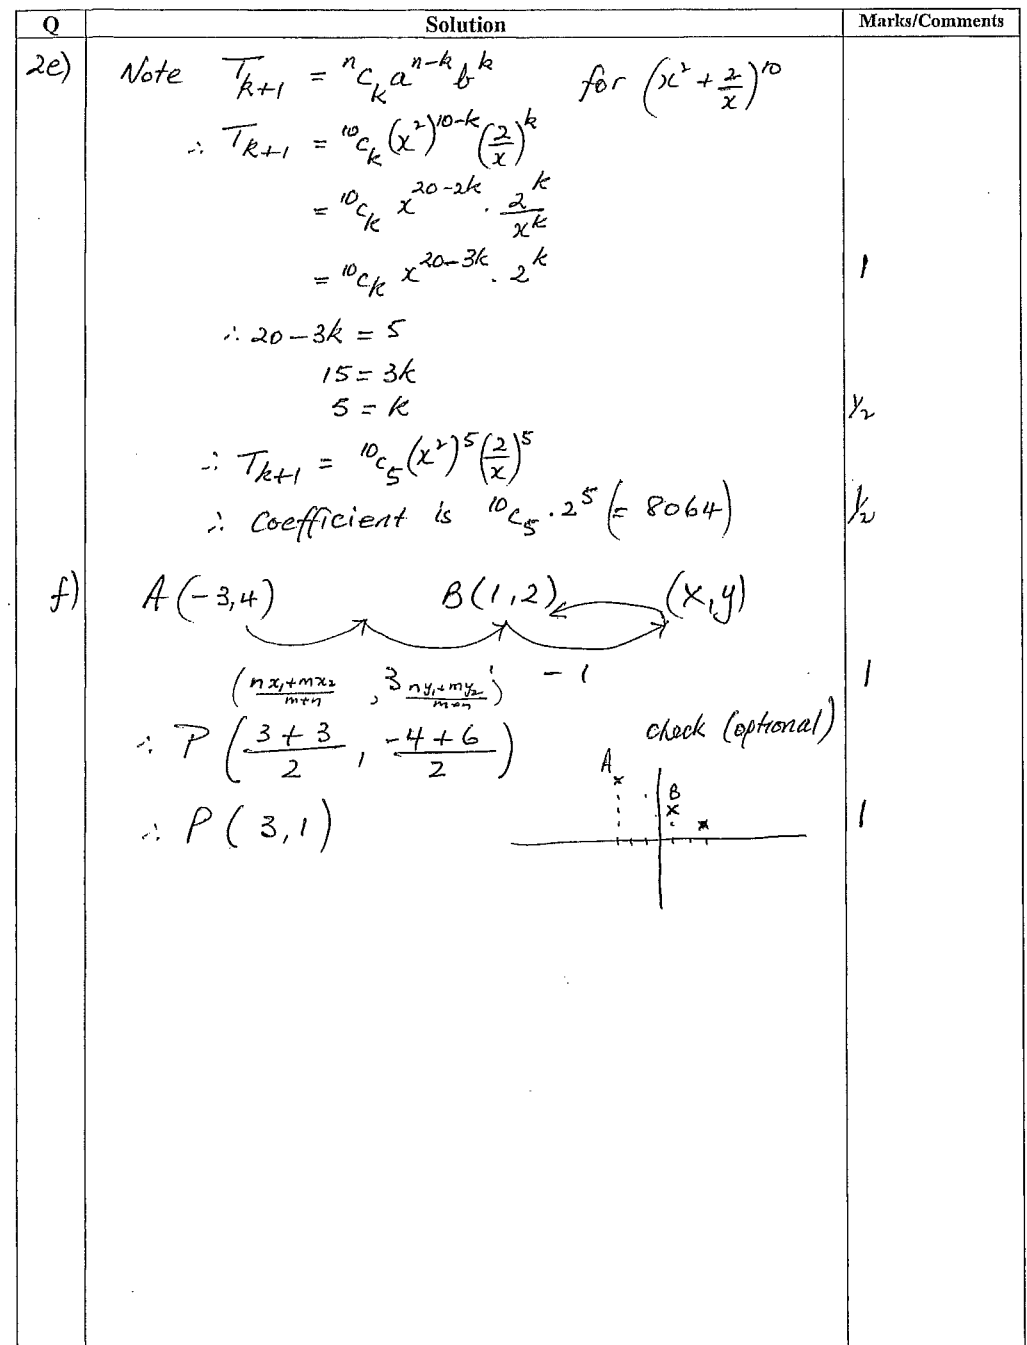 Q Solution Marks/Comments
2e) Note T_{k+1} = ⁿC_k a^{n-k} b^k for (x² + 2/x)^{10}
∴ T_{k+1} = ¹⁰C_k (x²)^{10-k} (2/x)^k
= ¹⁰C_k x^{20-2k} . 2^k/x^k
= ¹⁰C_k x^{20-3k} . 2^k 1
∴ 20-3k = 5
15 = 3k
5 = k ½
∴ T_{k+1} = ¹⁰C_5 (x²)^5 (2/x)^5
∴ Coefficient is ¹⁰C_5 . 2^5 (= 8064) ½
f) A(-3,4) B(1,2) (x,y)
(nx₁+mx₂/m+n , 3 ny₁+my₂/m+n) -1 1
∴ P(3+3/2, -4+6/2) check (optional)
A
B
∴ P(3,1) 1